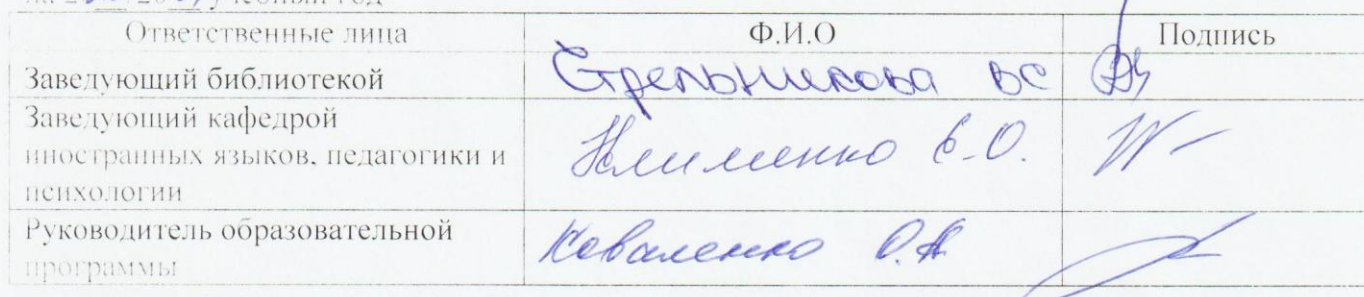 учебный год
Ответственные лица Ф.И.О Подпись
Заведующий библиотекой Стрельникова ВС
Заведующий кафедрой
иностранных языков, педагогики и Клименко Е.О.
психологии
Руководитель образовательной Коваленко О.А
программы